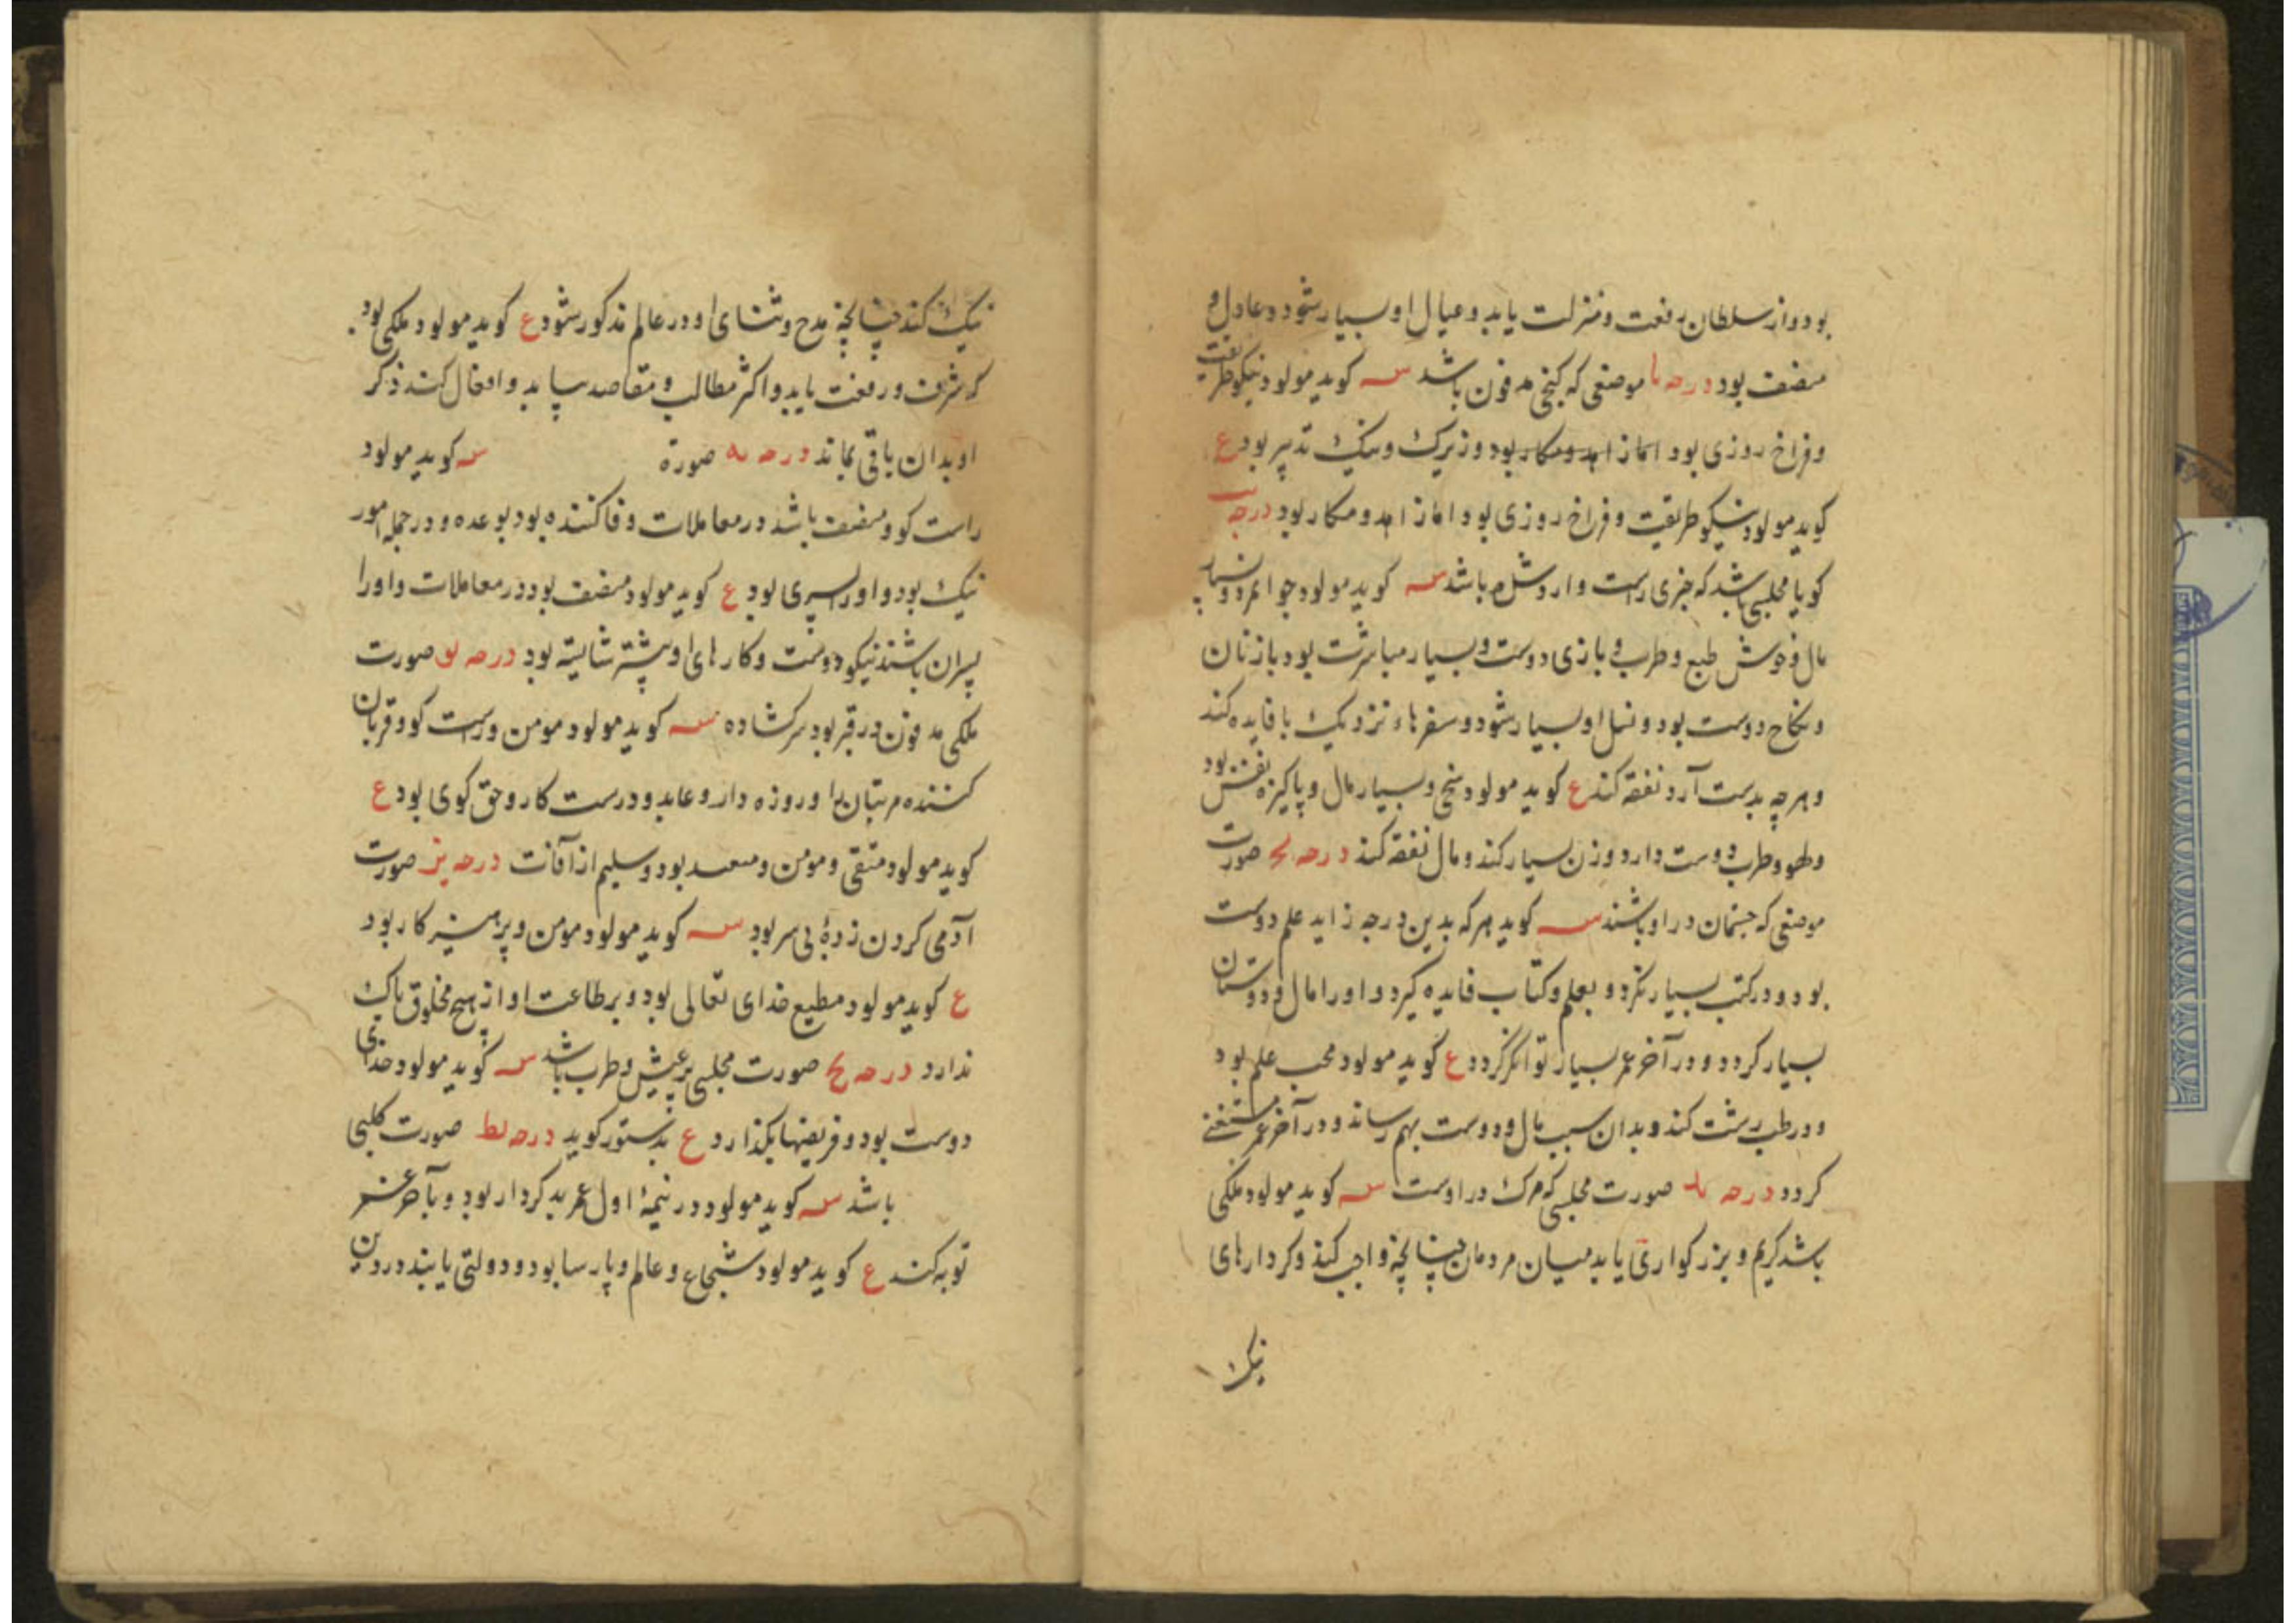 بود و از سلطان رفعت و منزلت یابد و عیال او بسیار شود و عادل و
منصف بود درجه یا موضعی که گنجی مدفون باشد سـ کوید مولود نیکو طریقت
و فراخ روزی بود اما زاهد و مکار بود و زیرک و نیک تدبیر بود ع
کوید مولود نیکو طریقت و فراخ روزی بود و اما زاهد و مکار بود درجه یب
کویا مجلسی باشد که چیزی راست و ارو شله باشد سـ کوید مولود جوانمرد و بسیار
مال و خوش طبع و طرب و بازی دوست و بسیار مباشرت بود با زنان
و نکاح دوست بود و نسل او بسیار شود و سفرهاء نزدیک با فایده کند
و هرچه بدست آرد نفقه کند ع کوید مولود سخی و بسیار مال و پاکیزه نفس بود
و لهو و طرب دوست دارد و زن بسیار کند و مال نفقه کند درجه یج صورت
موضعی که جنیان در او باشند سـ کوید هر که بدین درجه زاید علم دوست
بود و در کتب بسیار نکرد و بعلم و کتاب فایده کیرد و او را مال و دوستان
بسیار کردد و در آخر عمر بسیار توانکر کردد ع کوید مولود محب علم بود
و در طب رشت کند و بدان سبب مال و دوست بهم رساند و در آخر عمر مستغنی
کردد درجه ید صورت مجلسی که مرک در اوست سـ کوید مولود ملکی
باشد کریم و بزرکواری یابد میان مردمان چنانچه واجب کند و کردارهای
نیک
نیک کند چنانچه مدح و ثنای او در عالم مذکور شود ع کوید مولود ملکی بود
که شرف و رفعت یابد و اکثر مطالب و مقاصد بیابد و افعال کند ذکر
او بدان باقی بماند درجه یه صورة سـ کوید مولود
راست کو و منصف باشد در معاملات وفا کننده بود بوعده و در جمله امور
نیک بود و او را پسری بود ع کوید مولود منصف بود در معاملات و او را
پسران باشند نیکو دوست و کارهای او بیشتر شایسته بود درجه یو صورت
ملکی مدفون در قبر بود سرکشاده سـ کوید مولود مومن و راست کو و قربان
کننده مر بتان را و روزه دار و عابد و درست کار و حق کوی بود ع
کوید مولود متقی و مومن و مسعد بود و سلیم از آفات درجه یز صورت
آدمی کردن زدهٔ بی سر بود سـ کوید مولود مومن و پرهیزکار بود
ع کوید مولود مطیع خدای تعالی بود و بر طاعت او از هیچ مخلوق باک
ندارد درجه یح صورت مجلسی پر عیش و طرب باشد سـ کوید مولود خدای
دوست بود و فریضها بکذارد ع بدستور کوید درجه یط صورت کلبی
باشد سـ کوید مولود در نیمهٔ اول عمر بد کردار بود و بآخر عمر
توبه کند ع کوید مولود شجاع و عالم و پارسا بود و دولتی یابند در دین